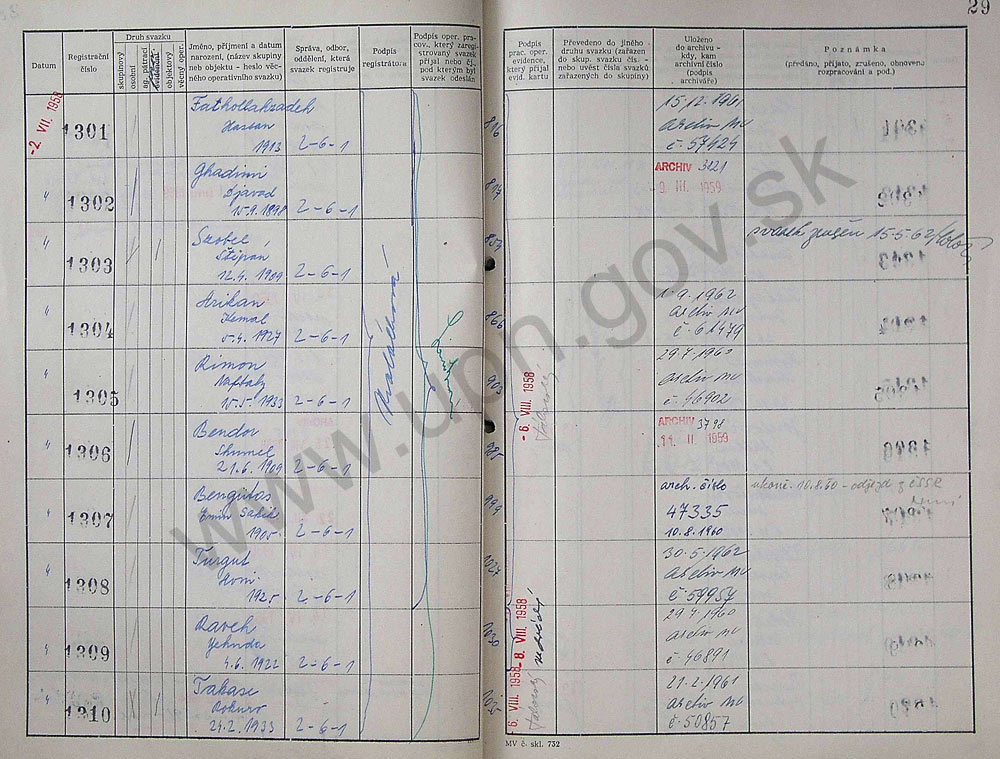 29
Datum
Registrační číslo
Druh svazku
skupinový
osobní
ag. pátrací
objektový
vedený oper.
Jméno, příjmení a datum
narození, (název skupiny
neb objektu - heslo věc-
ného operativního svazku)
Správa, odbor,
oddělení, která
svazek registruje
Podpis
registrátora
Podpis oper. pra-
cov., který zaregi-
strovaný svazek
přijal nebo čj.,
pod kterým byl
svazek odeslán
Podpis
prac. oper.
evidence,
který přijal
evid. kartu
Převedeno do jiného
druhu svazku (zařazen
do skup. svazku čís. -
nebo uvést čísla svazků
zařazených do skupiny)
Uloženo
do archivu -
kdy, kam
archivní číslo
(podpis
archiváře)
Poznámka
(předáno, přijato, zrušeno, obnoveno
rozpracování a pod.)
-2. VII. 1958
1301
Fathollahzadeh
Hassan
1913
2-6-1
816
15.12.1961
Archiv MV
č. 57424
"
1302
Ghadimi
Djavad
15.9.1898
2-6-1
ARCHIV 3121
9. III. 1959
"
1303
Štěpán
12.4.1909
2-6-1
svazek zrušen 15.5.62
"
1304
Arikan
Kemal
5.4.1927
2-6-1
866
1.9.1962
Archiv MV
č. 61479
"
1305
Rimon
Naftaly
15.5.1933
2-6-1
903
29.7.1960
archiv MV
č. 46902
- 6. VIII. 1958
"
1306
Bendor
Shumel
21.6.1909
2-6-1
ARCHIV 3798
11. II 1959
"
1307
Bengutas
Emin Sakih
1905
2-6-1
999
arch. číslo
47335
10.8.1960
ukonč. 10.8.60 - odjezd z ČSSR
"
1308
Turgut
1925
2-6-1
1027
30.5.1962
Archiv MV
č 59957
"
1309
Raveh
Yehuda
4.6.1922
2-6-1
1030
29.7.1960
archiv MV
č. 46891
- 8. VIII. 1958
"
1310
Takase
Rokuro
24.2.1933
2-6-1
21.2.1961
Archiv MV
č. 50857
6. VIII. 1958
MV č. skl. 732
www.upn.gov.sk